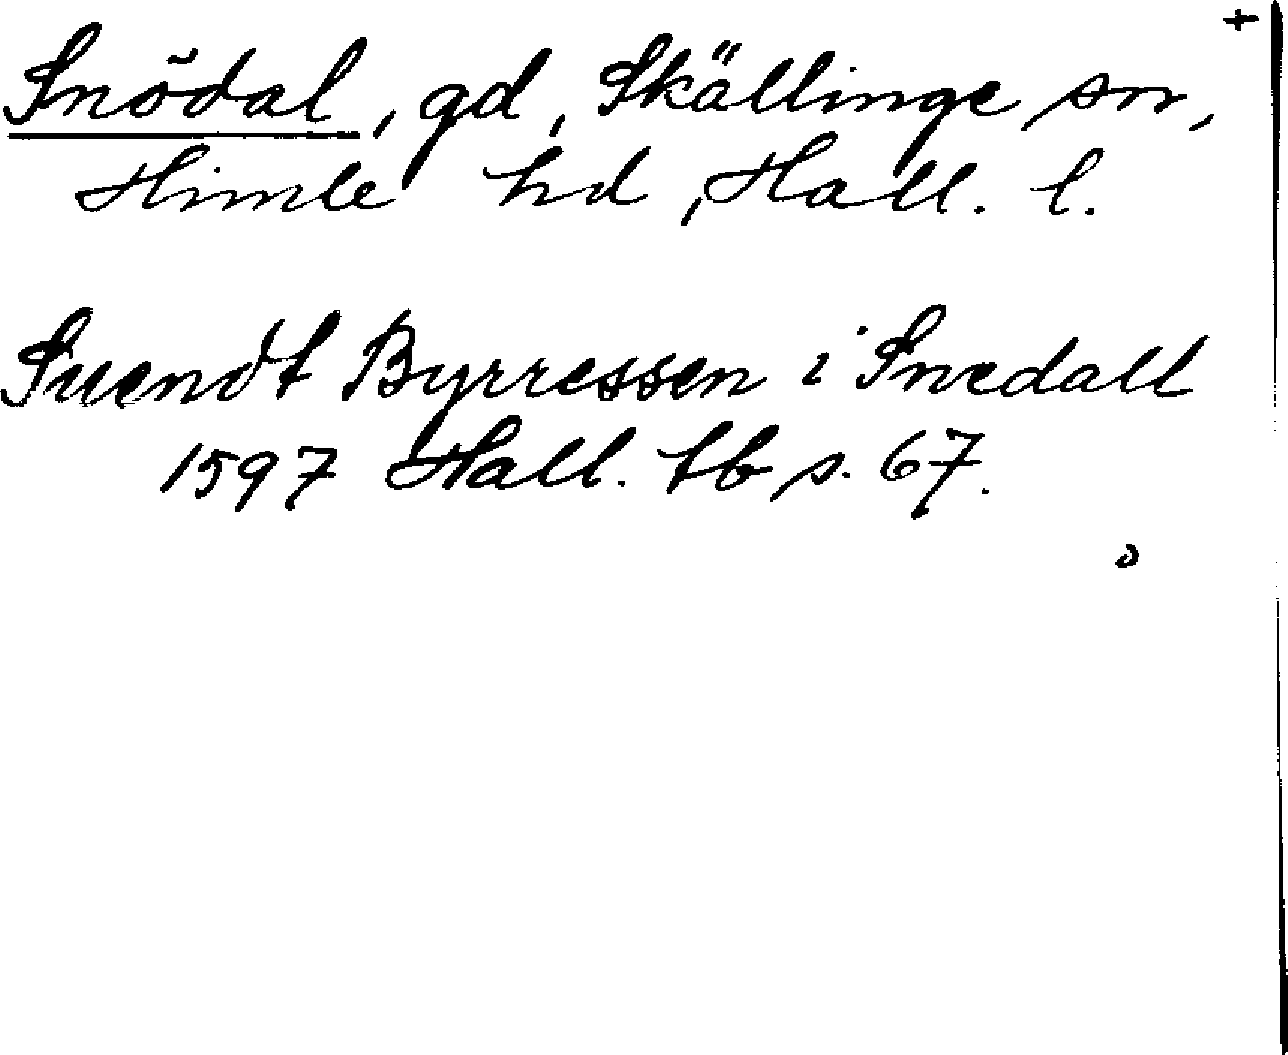 +
Snödal, gd, Skällinge sn,
Himle hd, Hall. l.
Suendt Byrressen i Snedall
1597 Hall. tb s. 67.